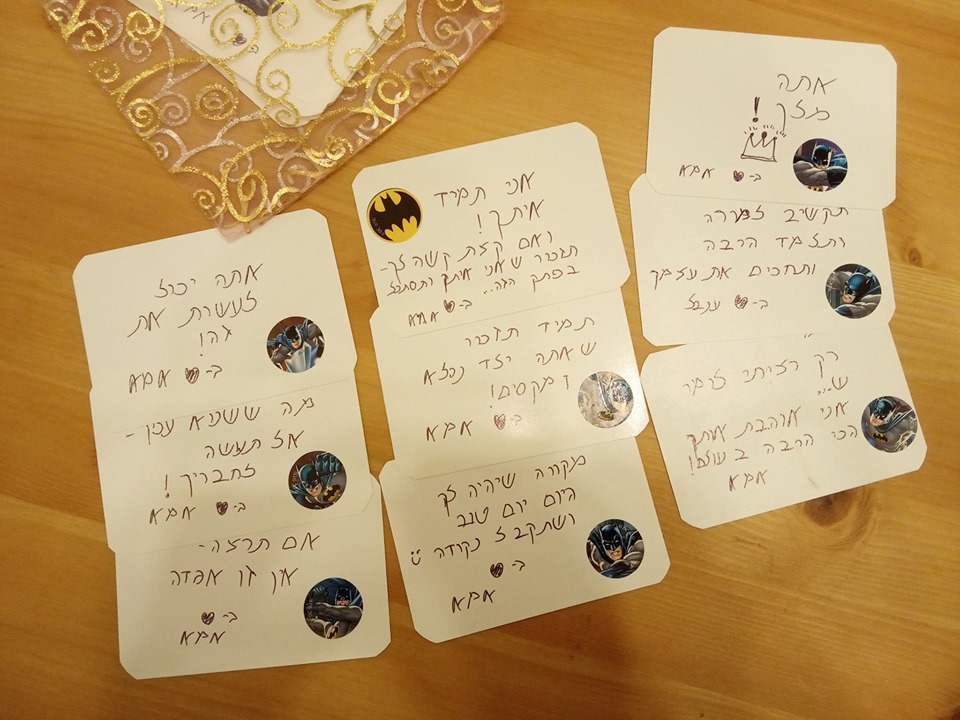 אתה
מלך !
ב- ♥ אמא
תקשיב למורה
ותלמד הרבה
ותחכים את עצמך
ב- ♥ ענבל
רק רציתי לומר
ש...
אני אוהבת אותך
הכי הרבה בעולם!
אמא
אני תמיד
איתך!
ואם קצת קשה לך-
תזכור שאני איתך ותסתכל
בפתק הזה..
ב- ♥ אמא
תמיד תזכור
שאתה ילד נפלא
ומקסים!
ב- ♥ אמא
מקווה שיהיה לך
היום יום טוב
ושתקבל נקודה :)
ב- ♥
אמא
אתה יכול
לעשות את
זה!
ב- ♥ אמא
מה ששנוא עליך -
אל תעשה
לחבריך !
ב- ♥ אמא
אם תרצה-
אין זו אגדה
ב- ♥
אמא